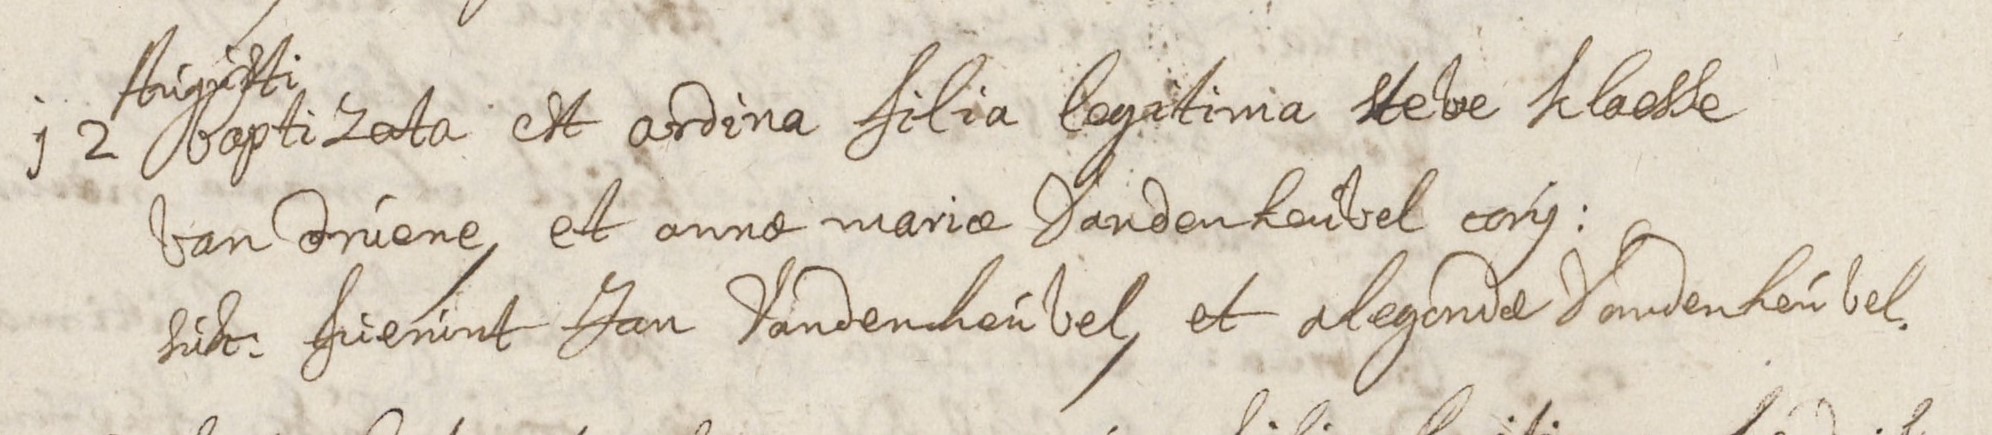 Augusti
j2 baptizata est ardina filia legitima steve klaesse
van druene, et annæ mariæ Vandenheuvel conj:
susc. fuerunt Jan Vandenheuvel, et alegondæ Vandenheuvel.